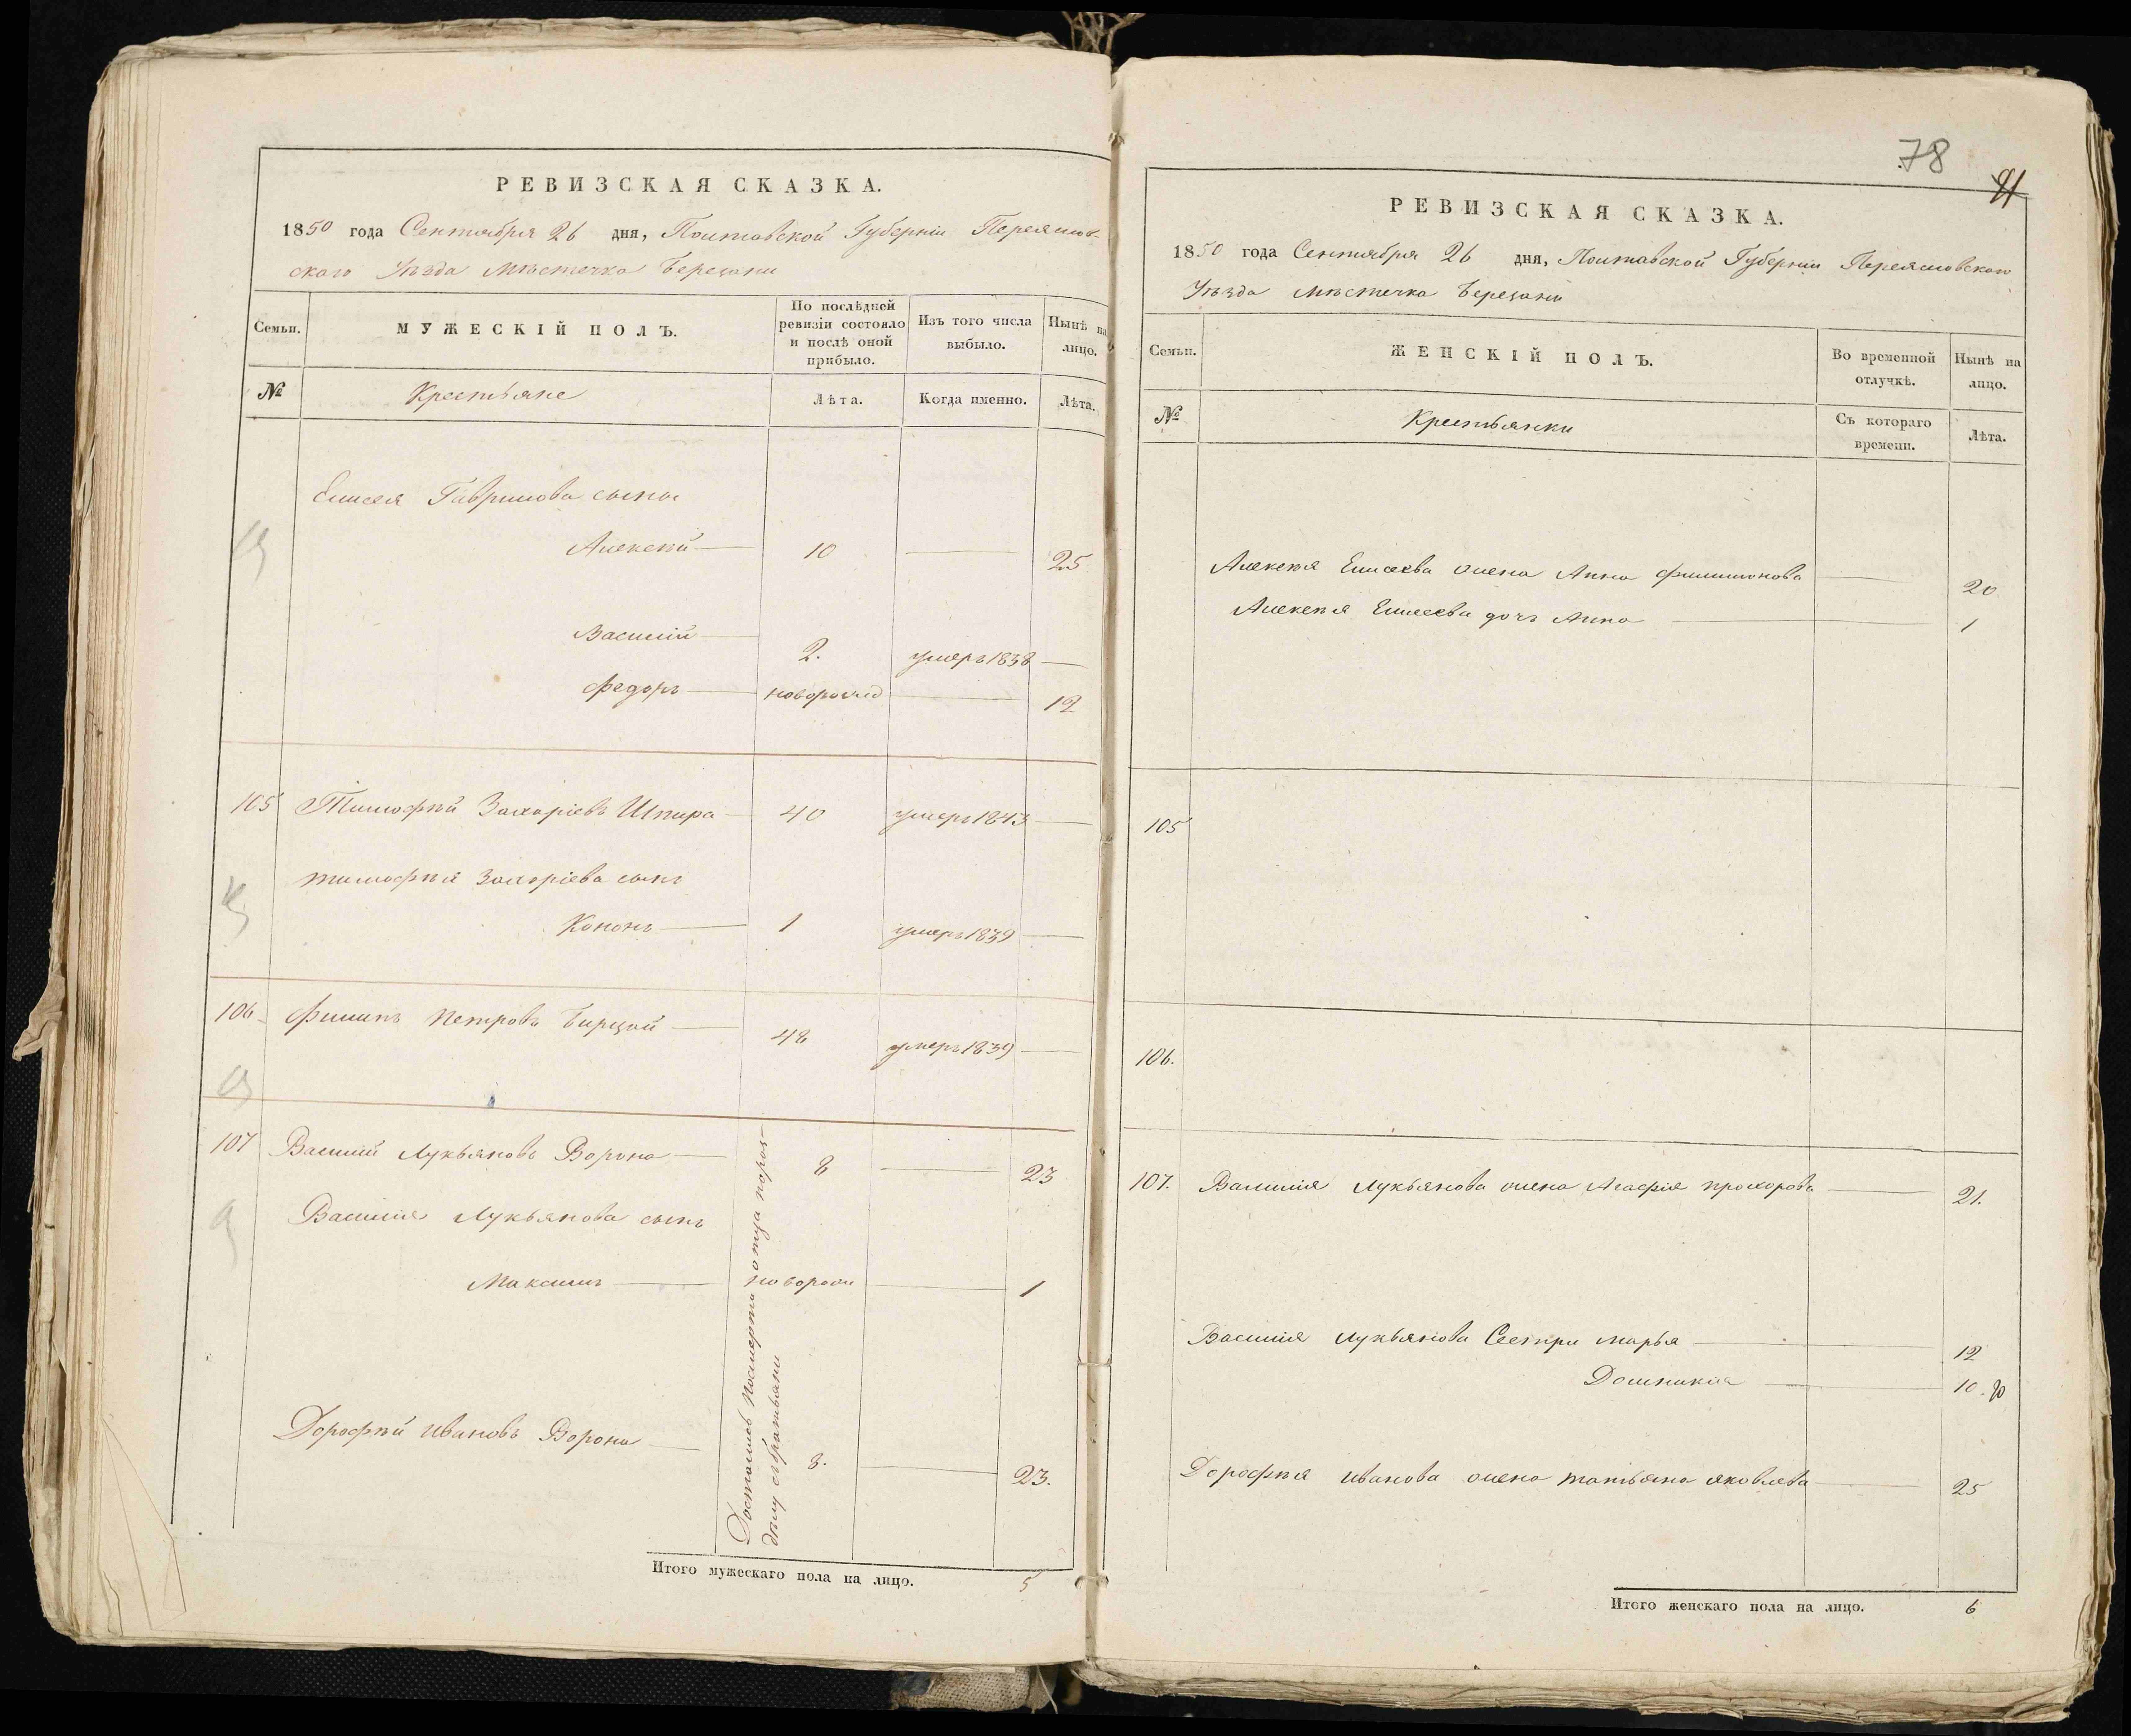 РЕВИЗСКАЯ СКАЗКА.
1850 года Сентября 26 дня, Полтавской Губерніи Переяслов-
скаго Уѣзда Мѣстечка Березани
Семьи.
МУЖЕСКІЙ ПОЛЪ.
По послѣдней ревизіи состояло и послѣ оной прибыло.
Изъ того числа выбыло.
Нынѣ на лицо.
№
Крестьяне
Лѣта.
Когда именно.
Лѣта.
Елисея Гаврилова сыны
Алексѣй 10 25
Василій 2. умеръ 1838
Федоръ новорожд 12
105 Тимофѣй Захаріевъ Шпира 40 умеръ 1843
Тимофѣя Захаріева сынъ
Кононъ 1 умеръ 1839
106 Филипъ Петровъ 48 умеръ 1839
107 Василий Лукьяновъ Ворона 8 23
Василия Лукьянова сынъ
Максимъ новорож 1
Дорофѣй Ивановъ Ворона 8. 23.
Достались посмерти отца пораз-
дѣлу събратьями
Итого мужескаго пола на лицо. 5
78
91
РЕВИЗСКАЯ СКАЗКА.
1850 года Сентября 26 дня, Полтавской Губерніи Переясловскаго
Уѣзда Мѣстечка Березани
Семьи.
ЖЕНСКІЙ ПОЛЪ.
Во временной отлучкѣ.
Нынѣ на лицо.
№
Крестьянки
Съ котораго времени.
Лѣта.
Алексѣя Елисеева жена Анна Филимонова 20
Алексѣя Елисеева дочь Анна 1
105
106.
107. Василия Лукьянова жена Агафія Прохорова 21.
Василия Лукьянова Сестри Марья 12
Домникия 10.
Дорофѣя Иванова жена Татьяна Яковлева 25
Итого женскаго пола на лицо. 6